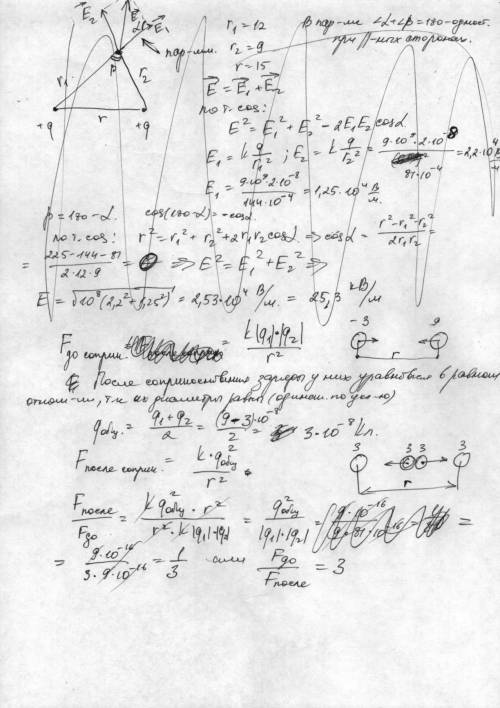 E₂ E E₁
α
β
r₁ r₂
+q r +q
пар-мм.
r₁ = 12
r₂ = 9
r = 15
В пар-ме ∠α+∠β = 180-одност.
при ||-ных сторонах.
E = E₁ + E₂
по т. cos:
E² = E₁² + E₂² - 2E₁E₂ cosα
E₁ = k q/r₁² ; E₂ = k q/r₂² = 9·10⁹·2·10⁻⁸/81·10⁻⁴ = 2,2·10⁴ В/м
E₁ = 9·10⁹·2·10⁻⁸/144·10⁻⁴ = 1,25·10⁴ В/м.
β = 180-α. cos(180-α) = -cosα.
по т. cos: r² = r₁² + r₂² + 2r₁r₂cosα ⇒ cosα = r²-r₁²-r₂²/2r₁r₂ =
= 225-144-81/2·12·9 = 0 ⇒ E² = E₁² + E₂² ⇒
E = √10⁸(2,2²+1,25²) = 2,53·10⁴ В/м. = 25,3 кВ/м
F до соприк. = k|q₁|·|q₂|/r²
-3 9
r
После соприкосновения заряды у них уравнятся в равном
отнош-ии, т.к их диаметры равны (одинак. по усл-ю)
q общ. = q₁+q₂/2 = (9-3)·10⁻⁸/2 = 3·10⁻⁸ Кл.
F после соприк. = k·q²общ/r².
3 3 3 3
r
F после/F до = k q²общ · r²/r²·k|q₁|·|q₂| = q²общ/|q₁|·|q₂| = =
= 9·10⁻¹⁶/3·9·10⁻¹⁶ = 1/3 или F до/F после = 3